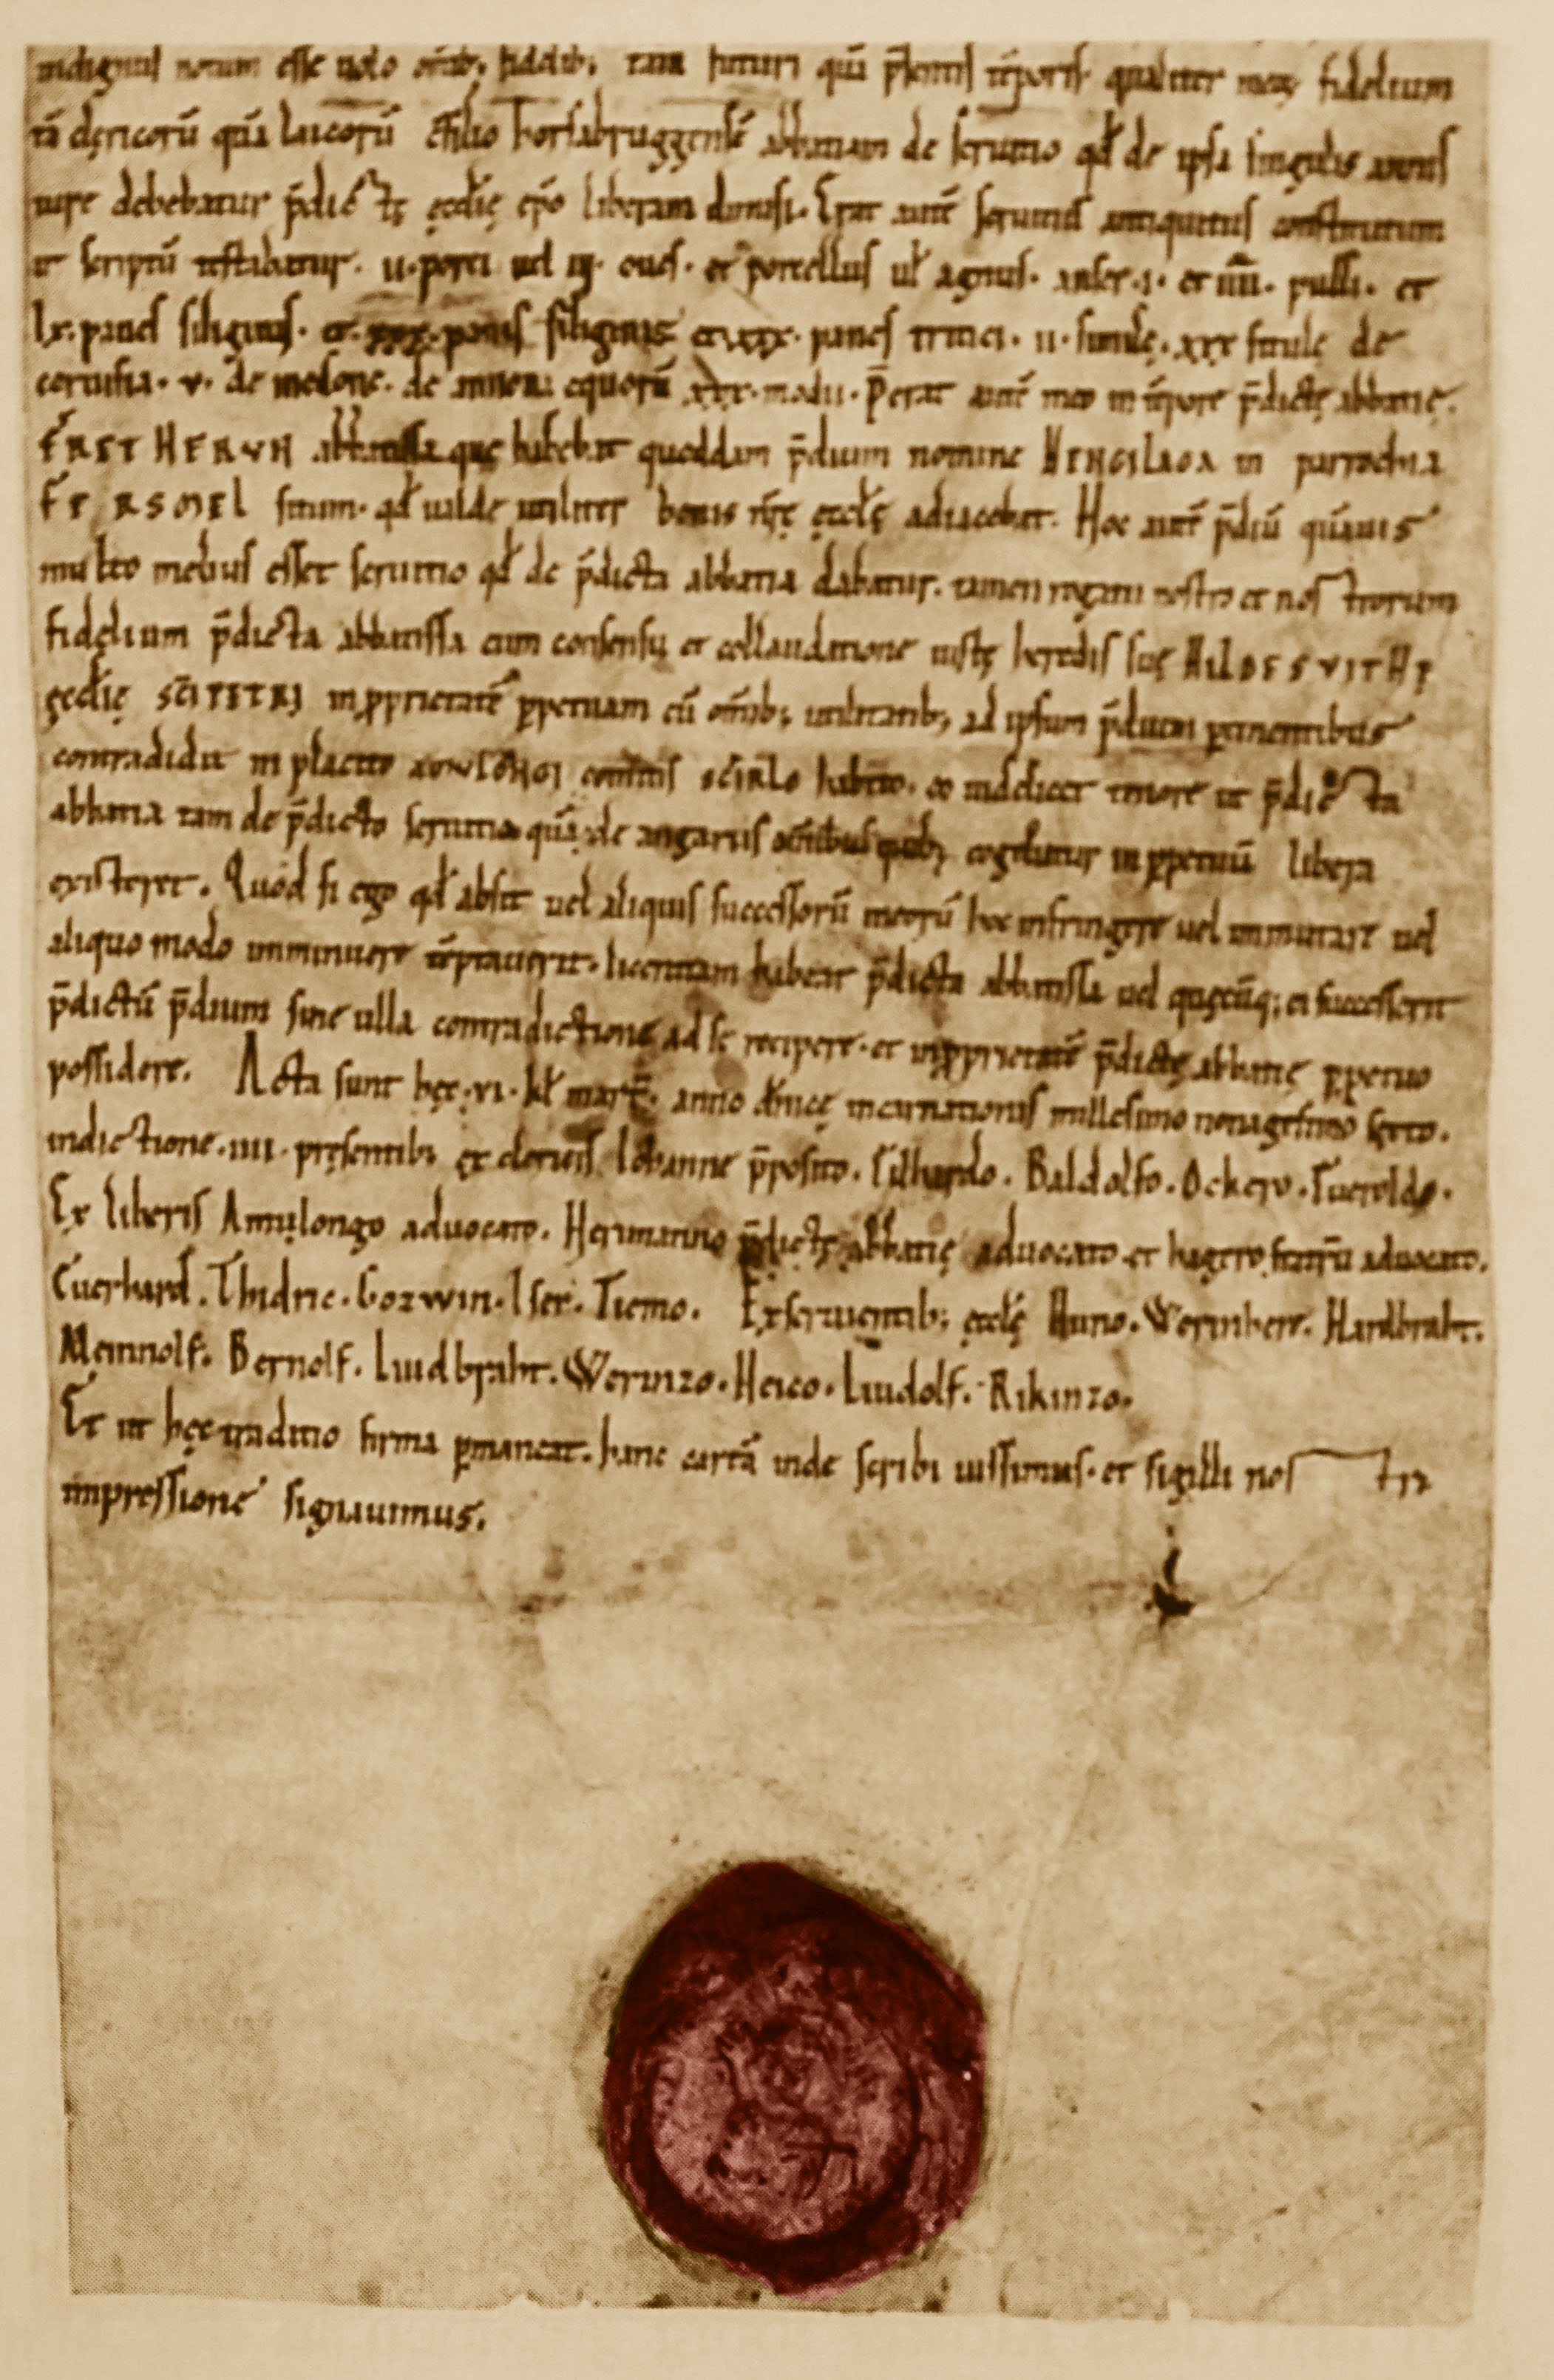 indignus notum esse uolo om̄ib; fidelib; tam futuri quā p̄sentis tēporis qualiter meoꝝ fidelium
tā clericorū quā laicorū c̄silio abbatiam de seruitio qđ de ipsa singulis annis
iure debebatur p̄dictę ęcclię ep̄o liberam dimisi. Erat autē seruitiū antiquitus constitutum
ut scriptū testabatur. ii. porci uel iii. oues. et porcellus ul̄ agnus. anser .i. et iiii. pulli. et
lx. panes siliginis. et xxx. panes siliginis et xxx. panes tritici. ii. situlę. xxx situlę de
ceruisia. v. de medone. de auena equorū xxx. modii. p̄erat autē meo in tēpore p̄dictę abbatię.
abbatissa quę habebat quoddam p̄dium nomine HENGILAGA in parrochia
situm. qđ ualde utiliter bonis nr̄ę ęcclę adiacebat. Hoc autē p̄diū quāuis
multo melius esset seruitio qđ de p̄dicta abbatia dabatur. tamen rogatu nostro et nostrorum
fidelium p̄dicta abbatissa cum consensu et collaudatione iustę heredis suę HILDESVITHE
ęcclię SC̄I PETRI in ꝓprietatē ꝑpetuam cū om̄ib; utilitatib; ad ipsum p̄dium ꝑtinentibus
contradidit in placito comitis habito. eo uidelicet tenore ut p̄dicta
abbatia tam de p̄dicto seruitio quā de angariis omībus quib; cogebatur in ꝑpetuū libera
existeret. Quod si ego qđ absit uel aliquis successorū meorū hoc infringere uel inmutare uel
aliquo modo imminuere tēptauerit. licentiam habeat p̄dicta abbatissa uel quęcūq; ei successerit
p̄dictū p̄dium sine ulla contradictione ad se recipere. et in ꝓprietatē p̄dictę abbatię ꝑpetuo
possidere. Acta sunt hęc .vi. kl̄ mart̄. anno dn̄icę incarnationis millesimo nonagesimo sexto.
indictione .iiii. pręsentib; ex clericis Iohanne p̄posito. Baldolfo. Ockero.
Ex liberis Amulongo aduocato. Herimanno p̄dictę abbatię aduocato et fratrū aduocato.
Euerhard. Thidric. Gozwin. Tiemo. Ex seruientib; ęcclę Anno. Werinhere. Hardbraht.
Meinnolf. Bernolf. Liudbraht. Werinzo. Heico. Liudolf. Rikinzo.
Et ut hęc traditio firma ꝑmaneat. hanc cartā inde scribi iussimus. et sigilli nostri
impressione signauimus.